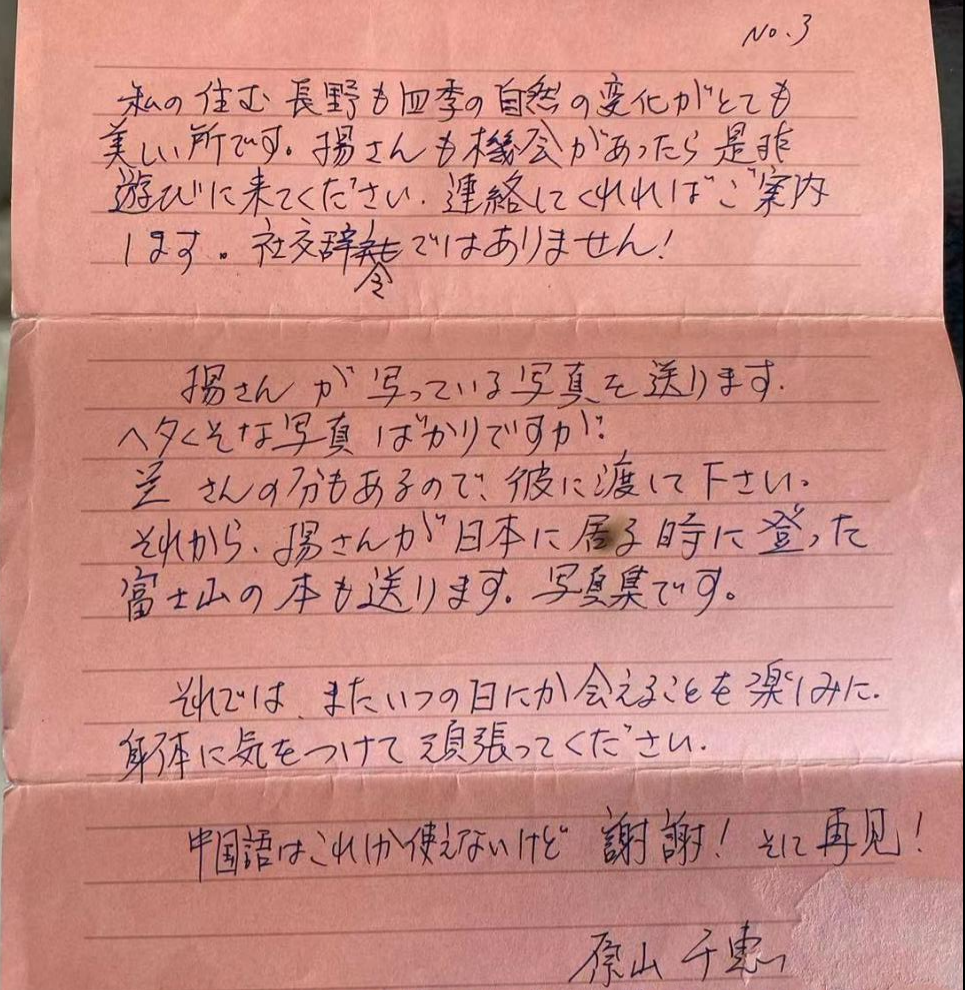 No.3
私の住む長野も四季の自然の変化がとても
美しい所です。揚さんも機会があったら是非
遊びに来てください。連絡してくれればご案内
します。社交辞令ではありません!
揚さんが写っている写真を送ります。
ヘタくそな写真ばかりですが。
さんの分もあるので、彼に渡して下さい。
それから、揚さんが日本に居る時に登った
富士山の本も送ります。写真集です。
それでは、またいつの日にか会えることを楽しみに。
身体に気をつけて頑張ってください。
中国語はこれしか使えないけど 謝謝!そして再見!
原山千恵